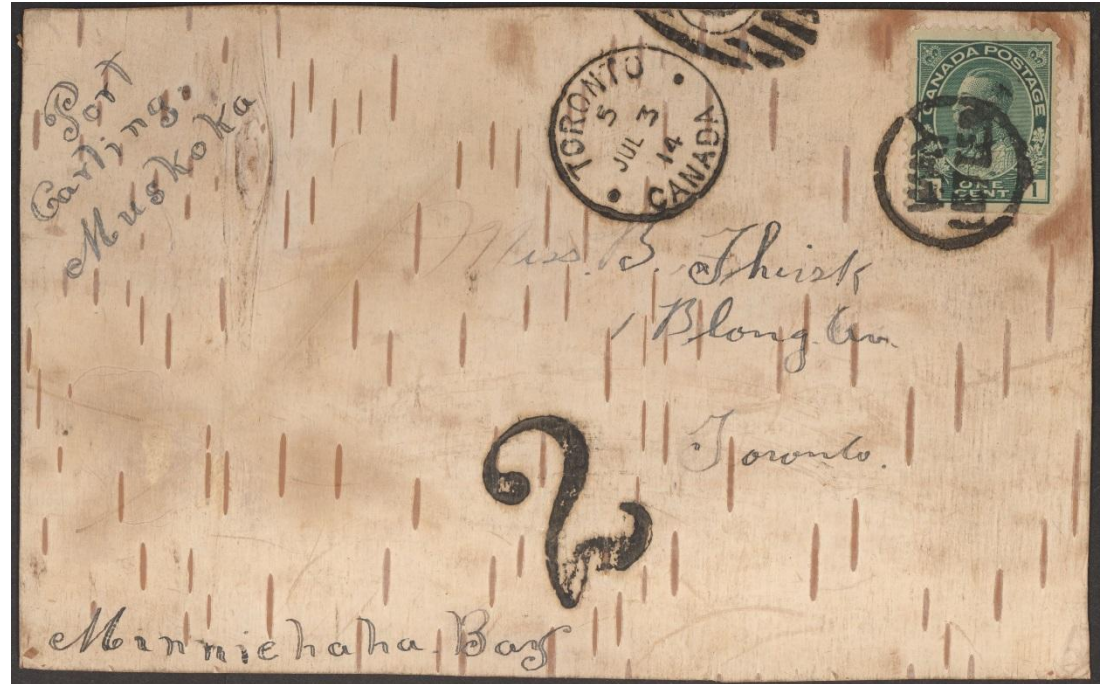 Port
Carling,
Muskoka
TORONTO
5
JUL 3
14
CANADA
CANADA POSTAGE
ONE
CENT
1
Miss. B. Thirsk
1 Blong Av.
Toronto.
2
Minniehaha Bay